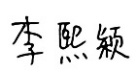 李熙颖